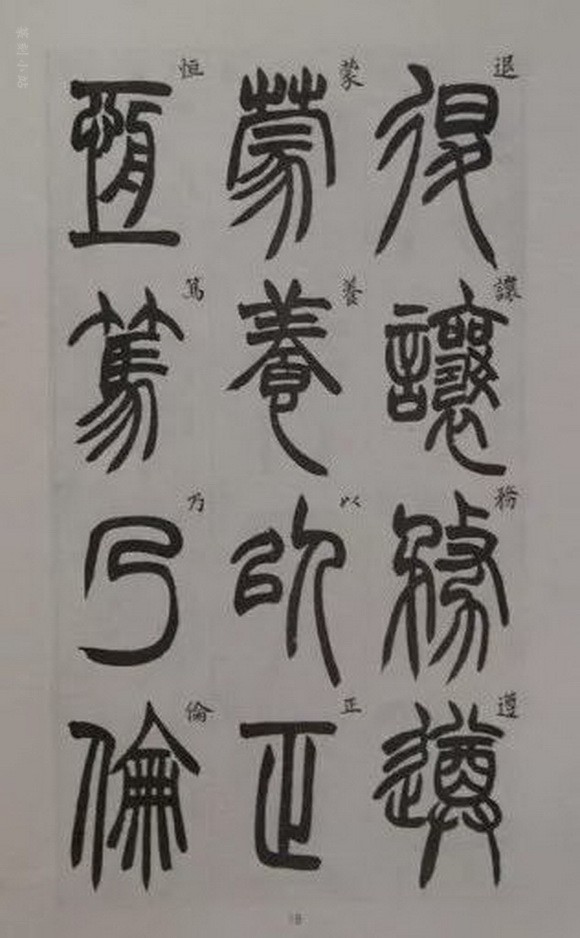 退讓務遵
蒙養以正
恒篤乃倫
18